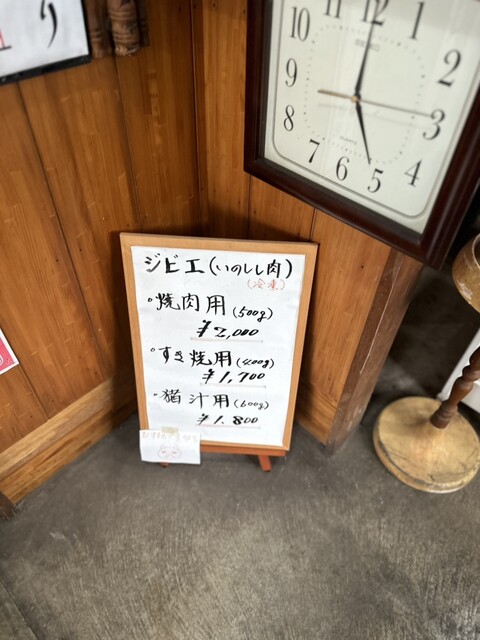 り
ジビエ(いのしし肉)
(冷凍)
・焼肉用(500g)
¥2,000
・すき焼用(400g)
¥1,700
・猪汁用(600g)
¥1.800
SEIKO
QUARTZ
12
1
2
3
4
5
6
7
8
9
10
11